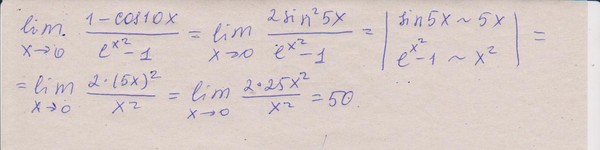 lim x→0 (1-cos10x)/(e^(x²)-1) = lim x→0 (2sin²5x)/(e^(x²)-1) = | sin5x ~ 5x e^(x²)-1 ~ x² | =
= lim x→0 (2·(5x)²)/x² = lim x→0 (2·25x²)/x² = 50